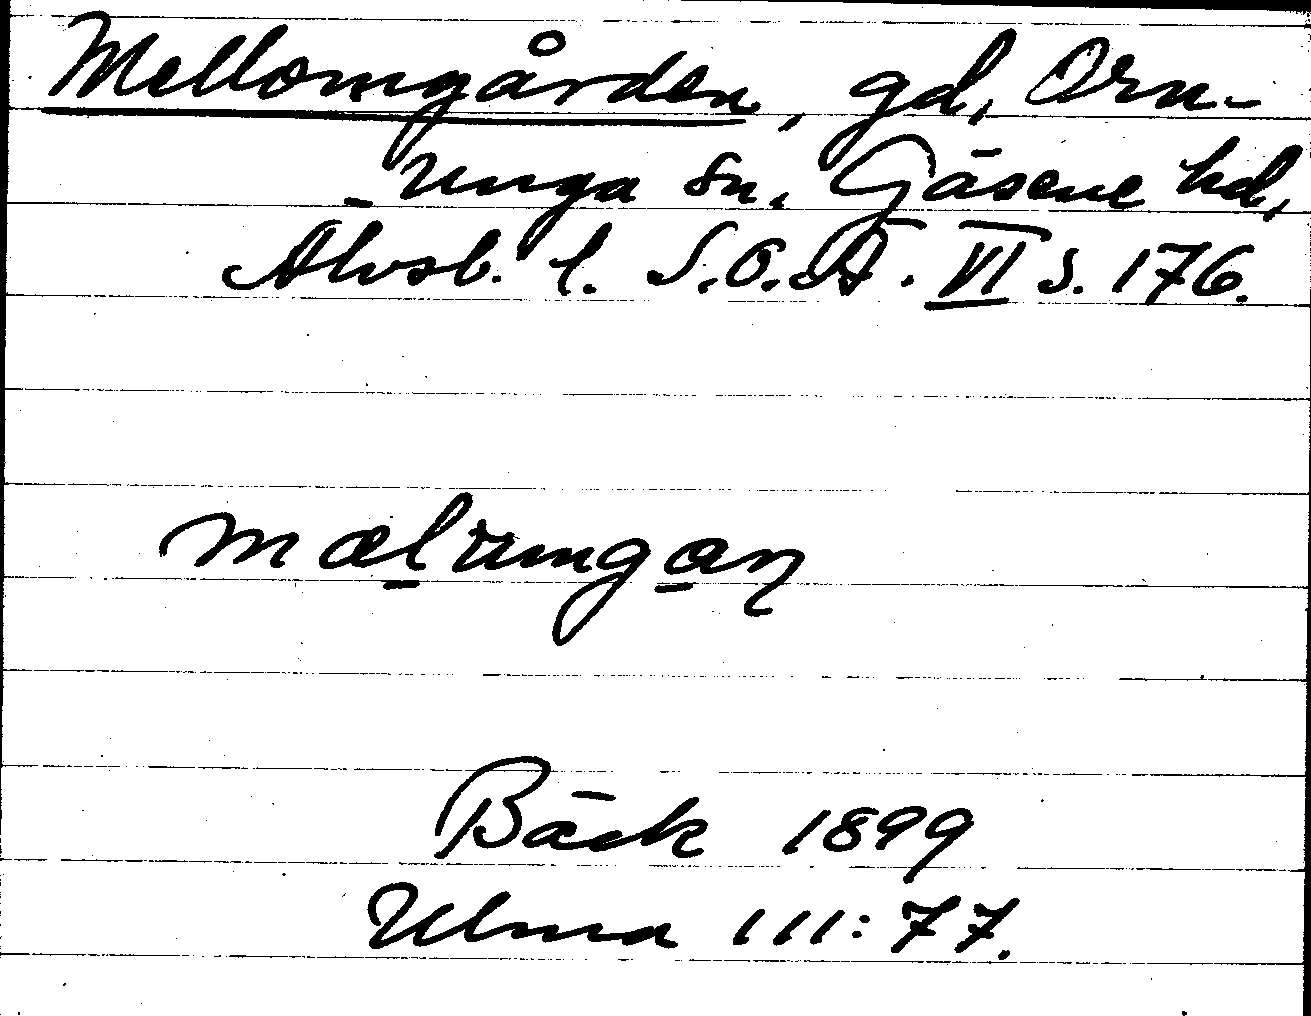 Mellomgården, gd, Orn-
-unga sn. Gäsene hd,
Älvsb. l. S.O.Ä. VI s. 176.
Bäck 1899
Ulma 111:77.